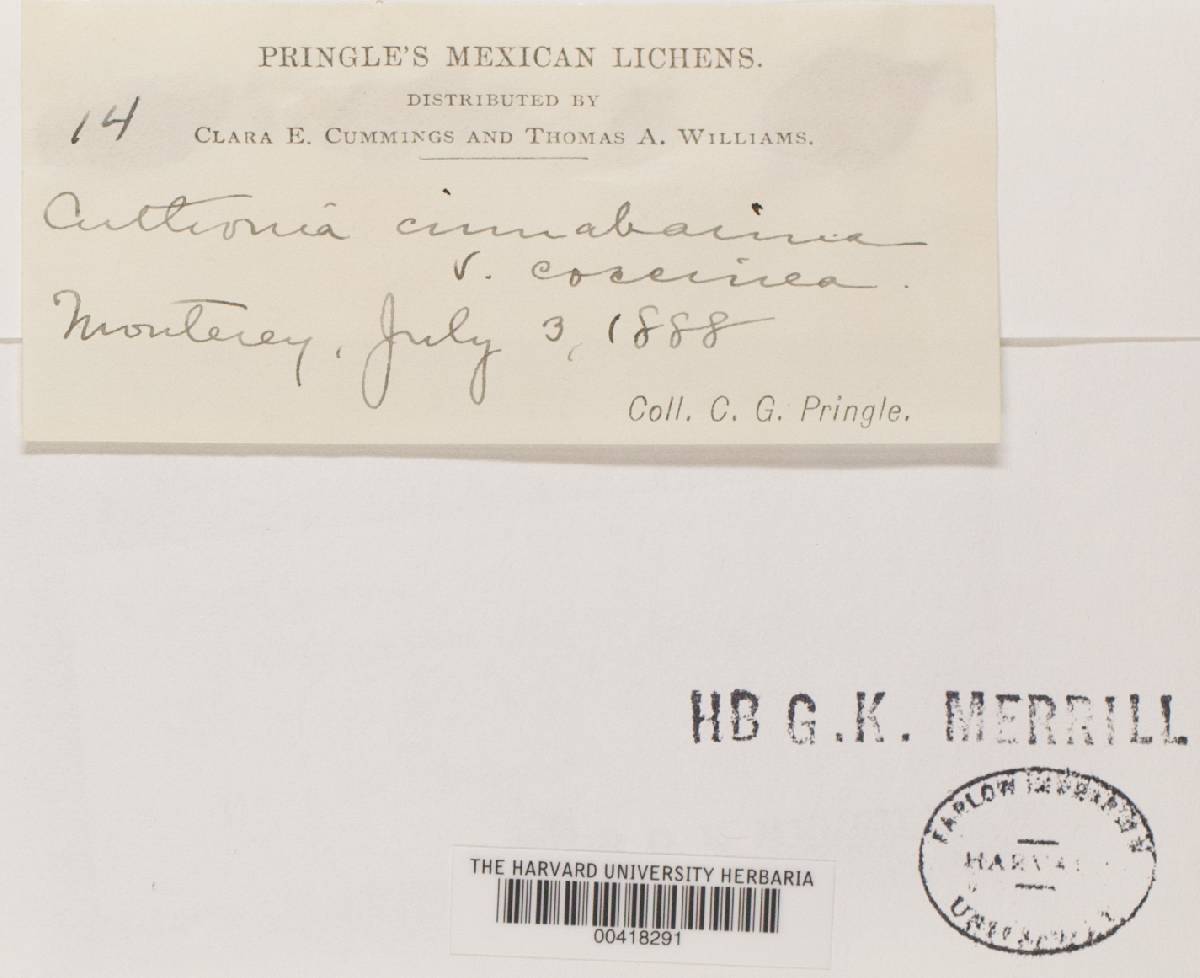 PRINGLE'S MEXICAN LICHENS.
DISTRIBUTED BY
14
CLARA E. CUMMINGS AND THOMAS A. WILLIAMS.
Arthonia cinnabarina
v. coccinea.
Monterey, July 3, 1888
Coll. C. G. Pringle.
HB G.K. MERRILL
FARLOW HERBARIUM
HARVARD
UNIVERSITY
THE HARVARD UNIVERSITY HERBARIA
00418291